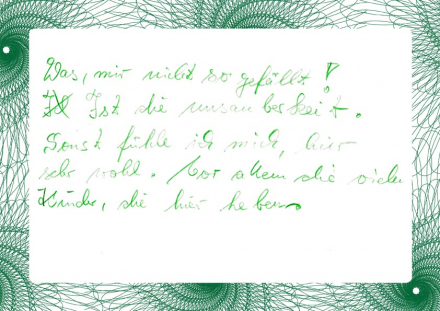 Was, mir nicht so gefällt!
Ist die unsauberkeit.
Sonst fühle ich mich, hier
sehr wohl. Vor allem die viele
Kinder, die hier leben